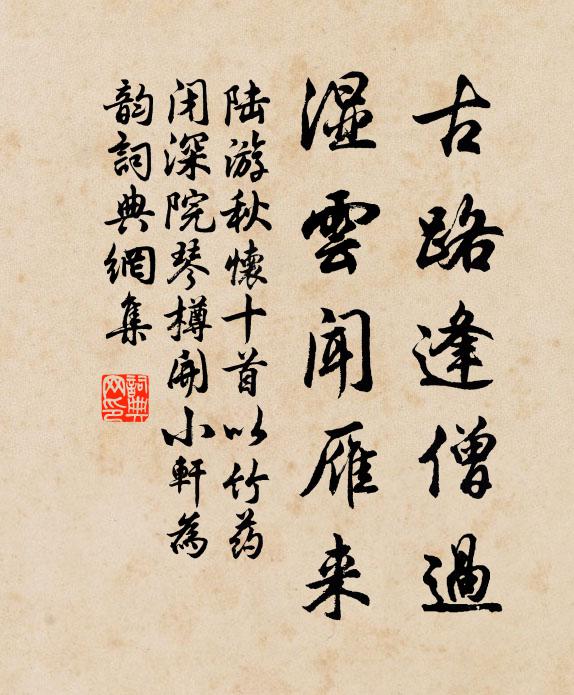 古路逢僧過
湿雲聞雁来
陆游秋懷十首以竹药
闭深院琴樽開小軒為
韵詞典網集
詞典网印